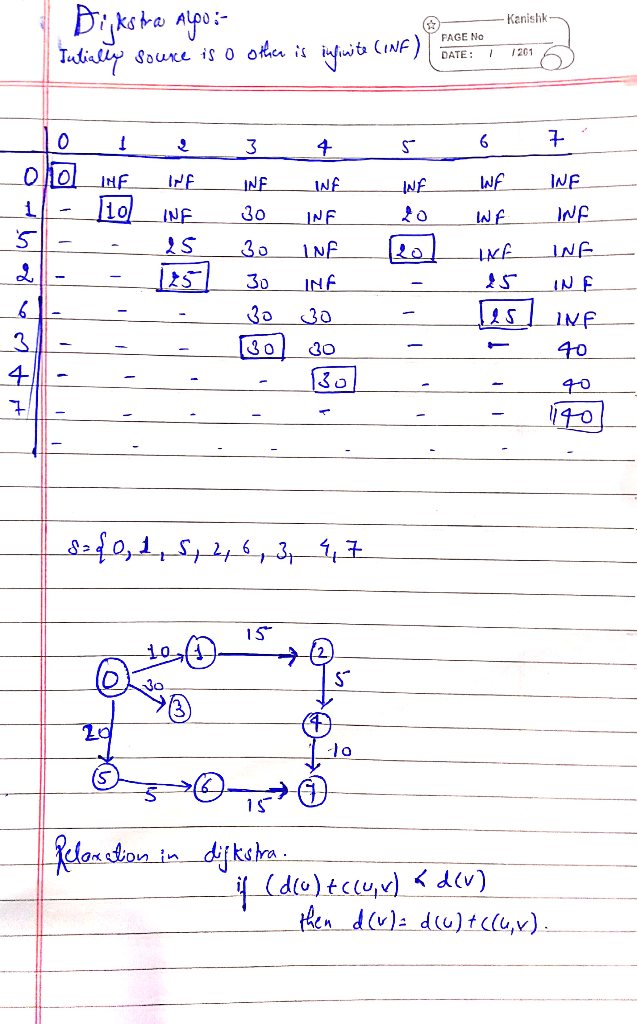 Dijkstra Algo:-
Initially source is 0 other is infinite (INF)
Kanishk
PAGE No
DATE: / /201
0 1 2 3 4 5 6 7
0 0 INF INF INF INF INF INF INF
1 - 10 INF 30 INF 20 INF INF
5 - - 25 30 INF 20 INF INF
2 - - 25 30 INF - 25 INF
6 - - - 30 30 - 25 INF
3 - - - 30 30 - - 40
4 - - - - 30 - - 40
7 - - - - - - - 40
- - - - - - - -
S={0, 1, 5, 2, 6, 3, 4, 7
10 1 15 2
0 30 3 5
20 4
10
5 5 6 15 7
Relaxation in dijkstra.
if (d(u)+c(u,v) < d(v)
then d(v)= d(u)+c(u,v).